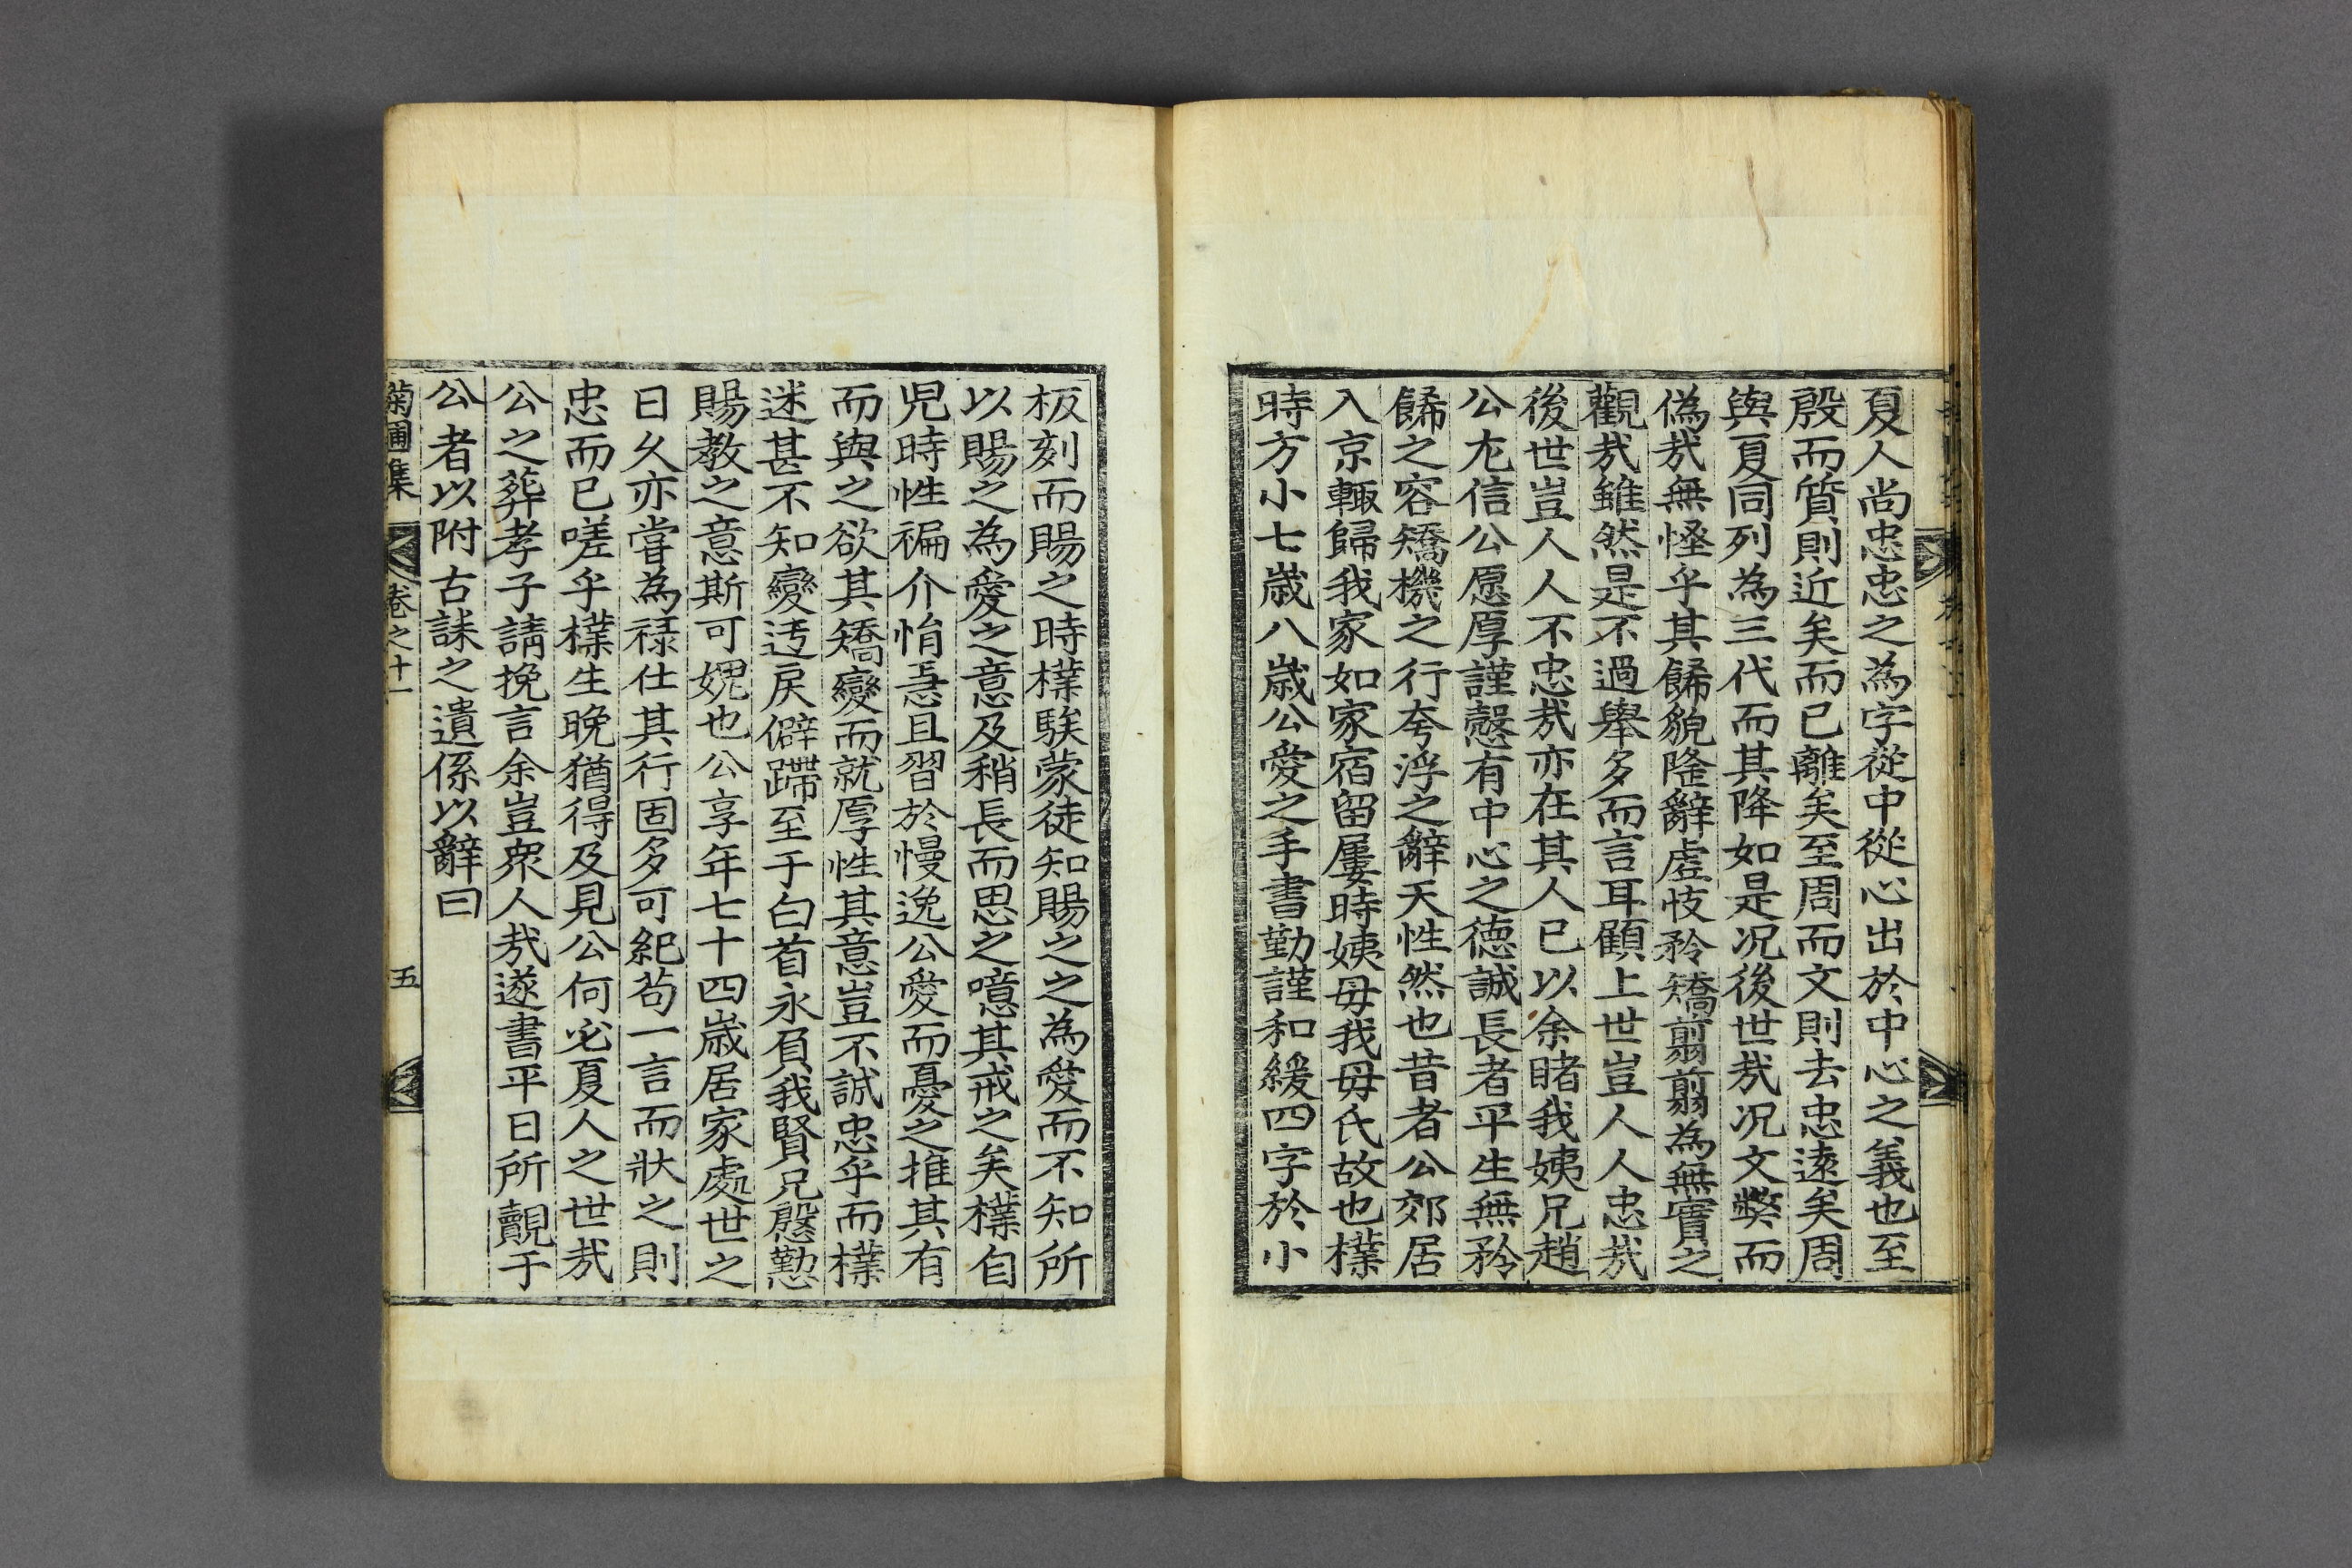 夏人尚忠忠之為字從中從心出於中心之義也至
殷而質則近矣而已離矣至周而文則去忠遠矣周
與夏同列為三代而其降如是况後世㦲况文弊而
偽㦲無怪乎其餙貌隆辭虛忮矜矯翦翦為無實之
觀㦲雖然是不過舉多而言耳顧上世豈人人忠㦲
後世豈人人不忠㦲亦在其人已以余睹我姨兄趙
公尤信公愿厚謹慤有中心之德誠長者平生無矜
餙之容矯機之行夸浮之辭天性然也昔者公郊居
入京輙歸我家如家宿留屢時姨母我母氏故也㰒
時方小七歲八歲公愛之手書勤謹和緩四字於小
板刻而賜之時㰒騃蒙徒知賜之之為愛而不知所
以賜之為愛之意及稍長而思之噫其戒之矣㰒自
児時性褊介悁恚且習於慢逸公愛而憂之推其有
而與之欲其矯變而就厚性其意豈不誠忠乎而㰒
迷甚不知變迃戾僻蹛至于白首永負我賢兄慇懃
賜教之意斯可媿也公享年七十四歲居家處世之
日久亦嘗為祿仕其行固多可紀苟一言而狀之則
忠而已嗟乎㰒生晚猶得及見公何必夏人之世㦲
公之葬孝子請挽言余豈衆人㦲遂書平日所覿于
公者以附古誄之遺係以辭曰
菊圃集 卷之十一 五